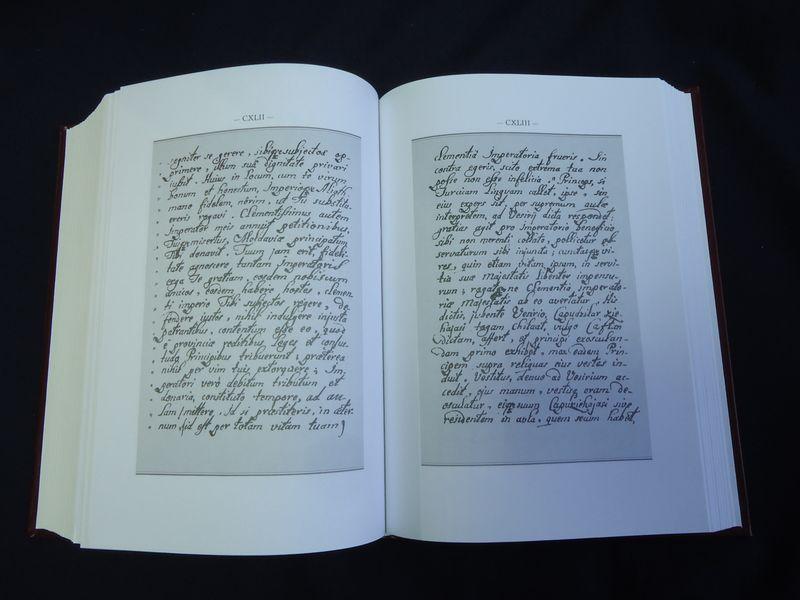 — CXLII —
segniter se gerere, sibique subjectos op-
primere, illum sua dignitate privari
jubet. Huius in Locum, cum te virum
bonum et honestum, Imperioque Aloth-
mano fidelem, nôrim, ut Tu substitu-
ereris rogavi. Clementissimus autem
Imperator meis annuit petitionibus,
Tuique misertus, Moldaviæ principatum
Tibi denavit. Tuum jam erit, fideli-
tate agnoscere, tantam Imperatoris
erga Te gratiam, eosdem nobiscum
amicos, eosdem habere hostes, clemen-
ti imperio Tibi subjectos regere, de-
fendere justos, nihil indulgere injusta
patrantibus, contentum esse eo, quod
e provinciæ reditibus, Leges et consue-
tudo Principibus tribuerunt, præterea
nihil per vim tuis extorquere; Im-
peratori verò debitum tributum, et
donaria, constituto tempore, ad au-
lam mittere. Id si præstiteris, in æter-
num (id est per totam vitam tuam)
— CXLIII —
Clementiâ Imperatoria frueris. Sin
contra egeris, scito extrema tua non
posse non esse infelicia. Princeps, si
Turcicam Linguam callet, ipse, sin
eius expers sit, per supremum aulæ
interpretem, ad Vesirij dicta respondet:
gratias agit pro Imperatorio beneficio
sibi non merenti collato, pollicetur ob-
servaturum sibi injuncta; cunctasque vi-
res, quin etiam vitam ipsam, in servi-
tia suæ Majestatis libenter impensu-
rum; rogatque ne Clementia Imperato-
riæ Majestatis ab eo avertatur. His
dictis, jubente Vesirio, Capuchilar
tagam, chilaat, vulgo Caftan
dictam, affert, et principi exosculan-
dam primo exhibet, mox eadem Prin-
cipem supra reliquas ejus vestes in-
duit. Vestitus, denuo ad Vesirium ac-
cedit, ejus manum, vestisque oram de-
osculatur, eiusque Capukiehajasi sive
residentem in aula, quem secum habet,